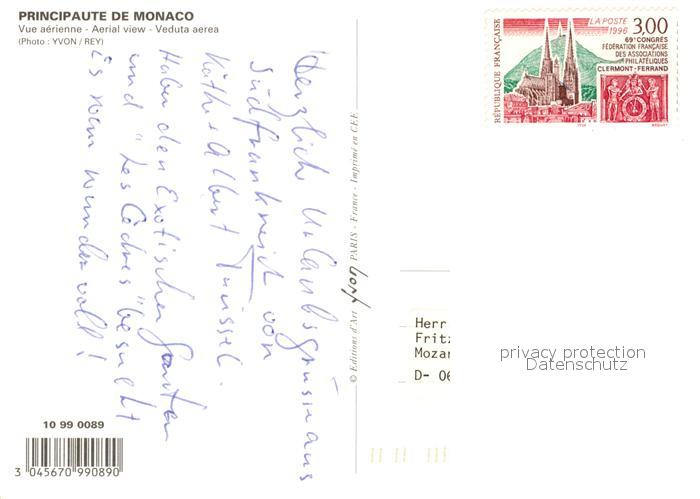 PRINCIPAUTE DE MONACO
Vue aérienne - Aerial view - Veduta aerea
(Photo : YVON / REY)
Herzliche Urlaubsgrüsse aus
Südfrankreich von
Käthe + Albert
Haben den Exotischen Garten
und "Les Cèdres" besucht
Es war wundervoll!
© Editions d'Art YVON PARIS - France - Imprimé en CEE
10 99 0089
3 045670 990890
RÉPUBLIQUE FRANÇAISE
LA POSTE
1996
3,00
69e CONGRÈS
FÉDÉRATION FRANÇAISE
DES ASSOCIATIONS
PHILATÉLIQUES
CLERMONT-FERRAND
Herr
Fritz
Mozar
D- 06
privacy protection
Datenschutz